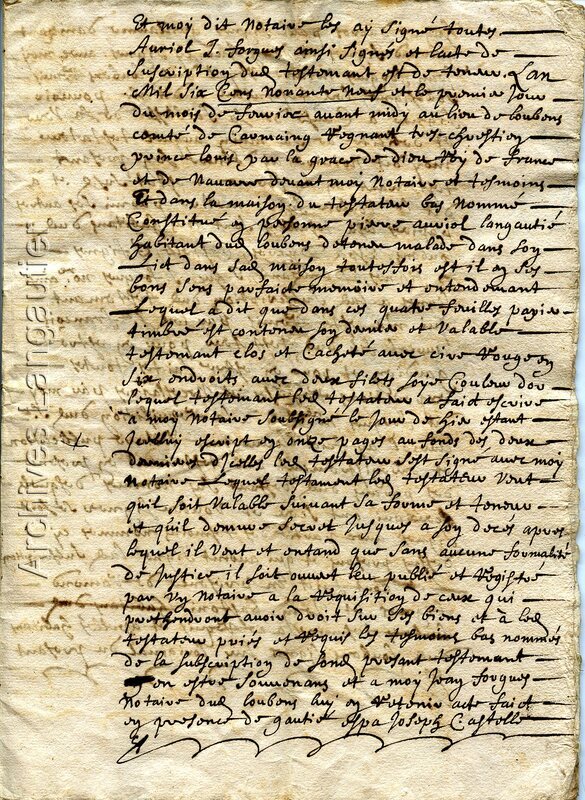 Et moy dit Notaire les ay signé toutes
Auriol J. forgues ainsi signés et lacte de
Suscription dud testemant est de teneur. Lan
Mil Six Cens Nonante Neuf et le premier Jour
du mois de feurier auant midy au lieu de loubens
comté de Carmaing Regnant tres chrestien
prince louis par la grace de dieu Roy de france
et de Nauarre deuant moy Notaire et tesmoins
Et dans la maison du testateur bas Nomme
Constitué en personne pierre auriol langautié
habitant dud loubens detenu malade dans son
Lict dans sad maison toutesfois est il en ses
bons sens parfaicte memoire et entendemant
Lequel a dit que dans ces quatre feuilles papier
timbré est contenu son dernier et Valable
testemant clos et Cacheté auec cire Rouge en
Six endroits auec deux filets soye Couleur dor
lequel testemant led testateur a faict escrire
a moy Notaire soubsigné le Jour de hier estant
Icelluy escript en onze pages au fonds des deux
dernieres dIcelles led testateur sest signé auec moy
Notaire Lequel testament led testateur Veut
quil soit Valable suiuant sa forme et teneur
et quil demure secret Jusques a son deces apres
lequel il Veut et entand que sans aucune formalité
de Justice il soit ouuert leu publié et Registré
par un Notaire a la Requisition de ceux qui
prethendront auoir droit sur ses biens et a led
testateur priés et Requis les tesmoins bas nommés
de la subscription de sond presant testemant
en estre souuenans et a moy Jean forgues
Notaire dud loubens luy en Retenir acte faict
en presence de gautie espa Joseph Castelle
Archives Langautier